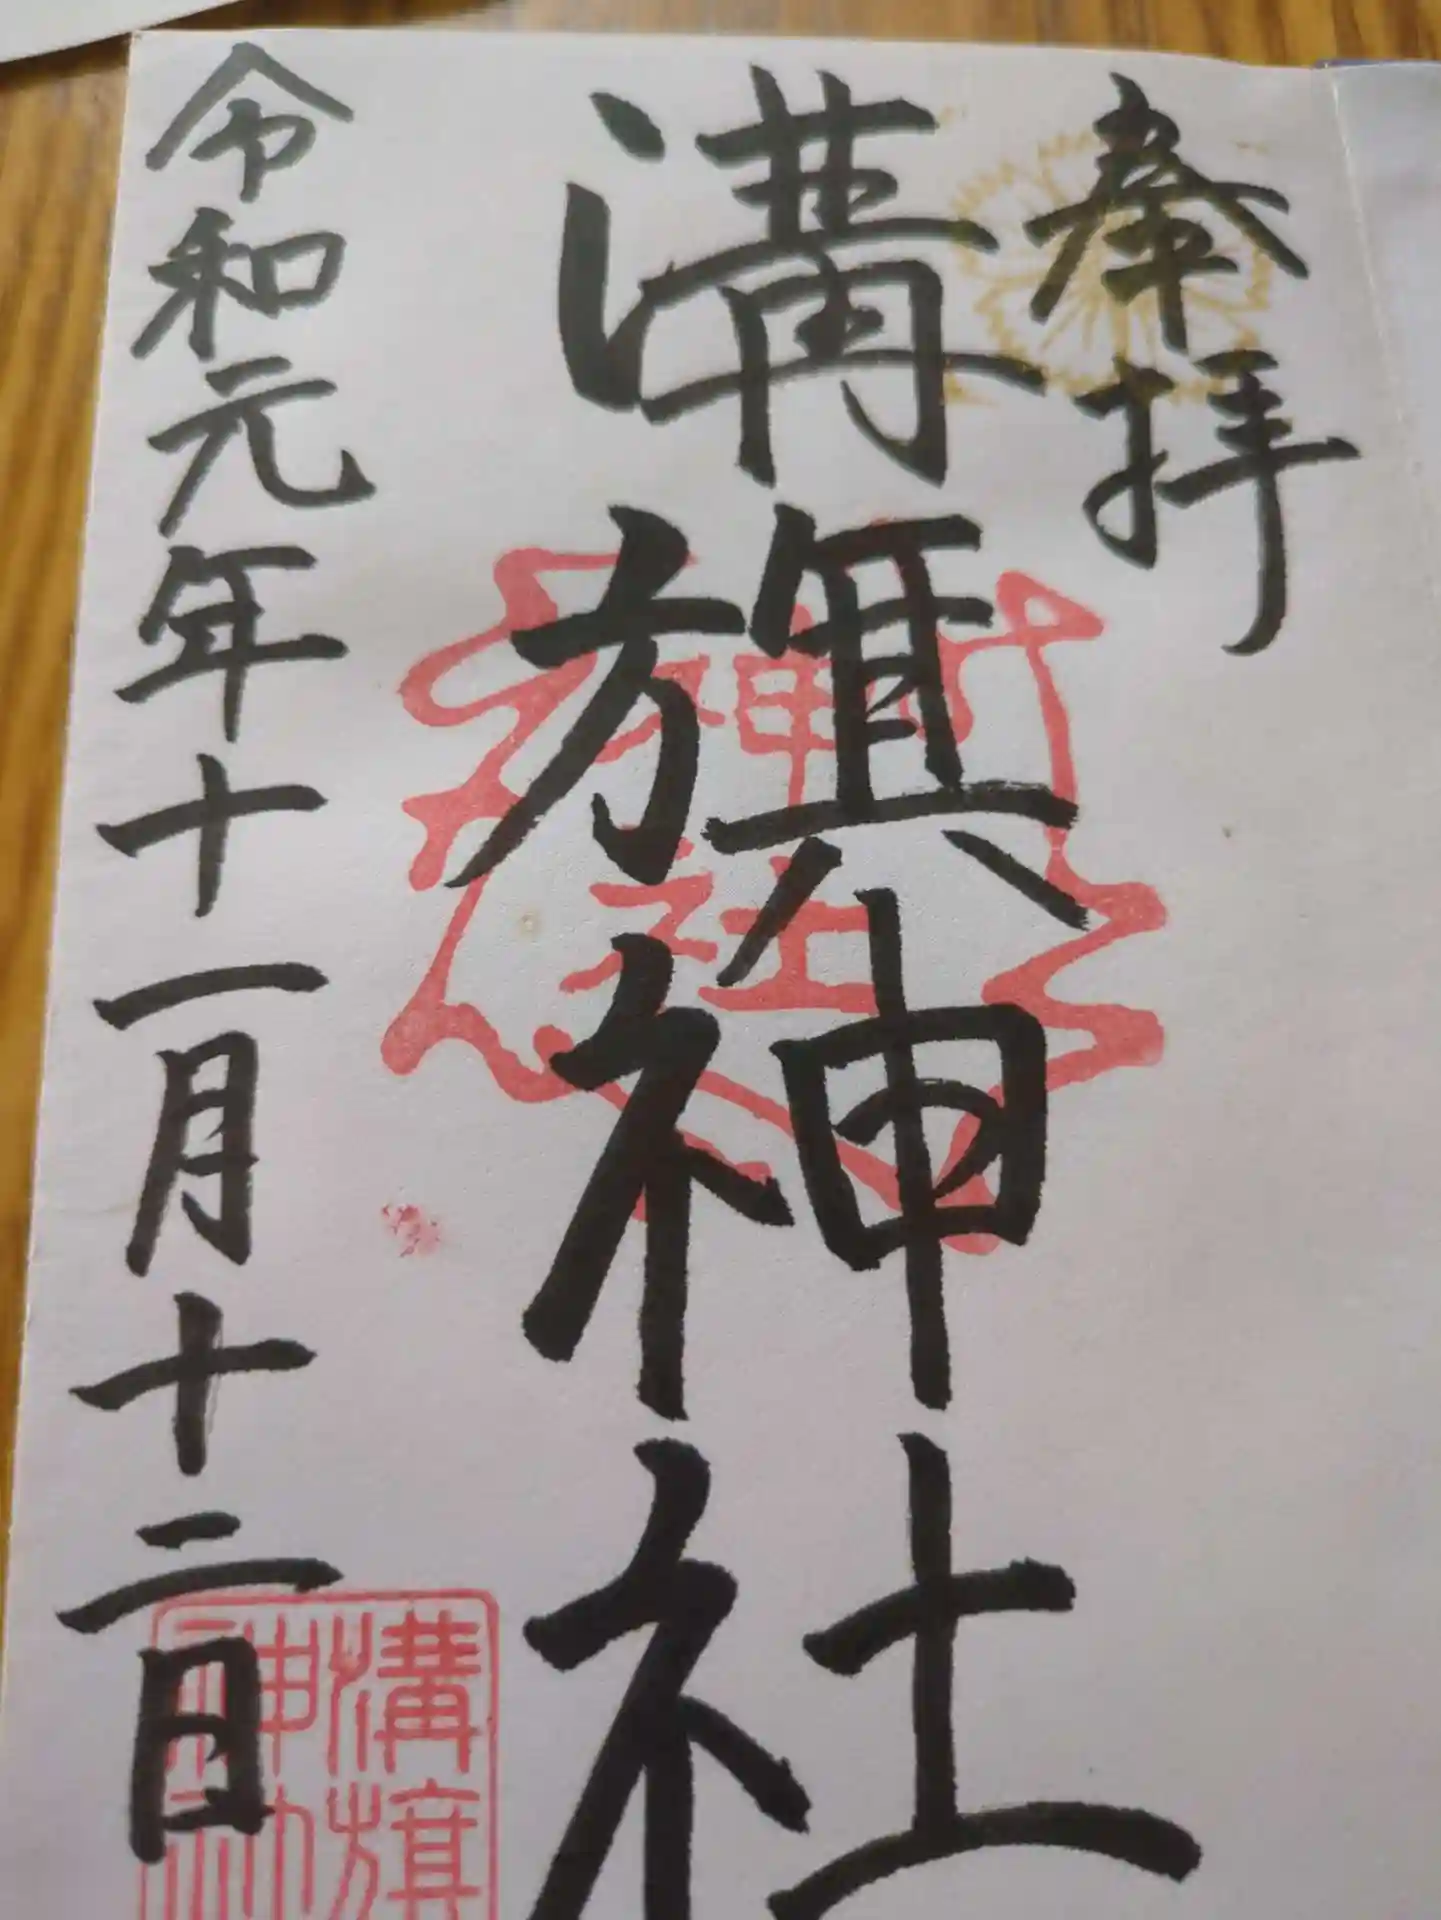 奉拝
溝旗神社
神社
令和元年十一月十二日
溝旗
神社